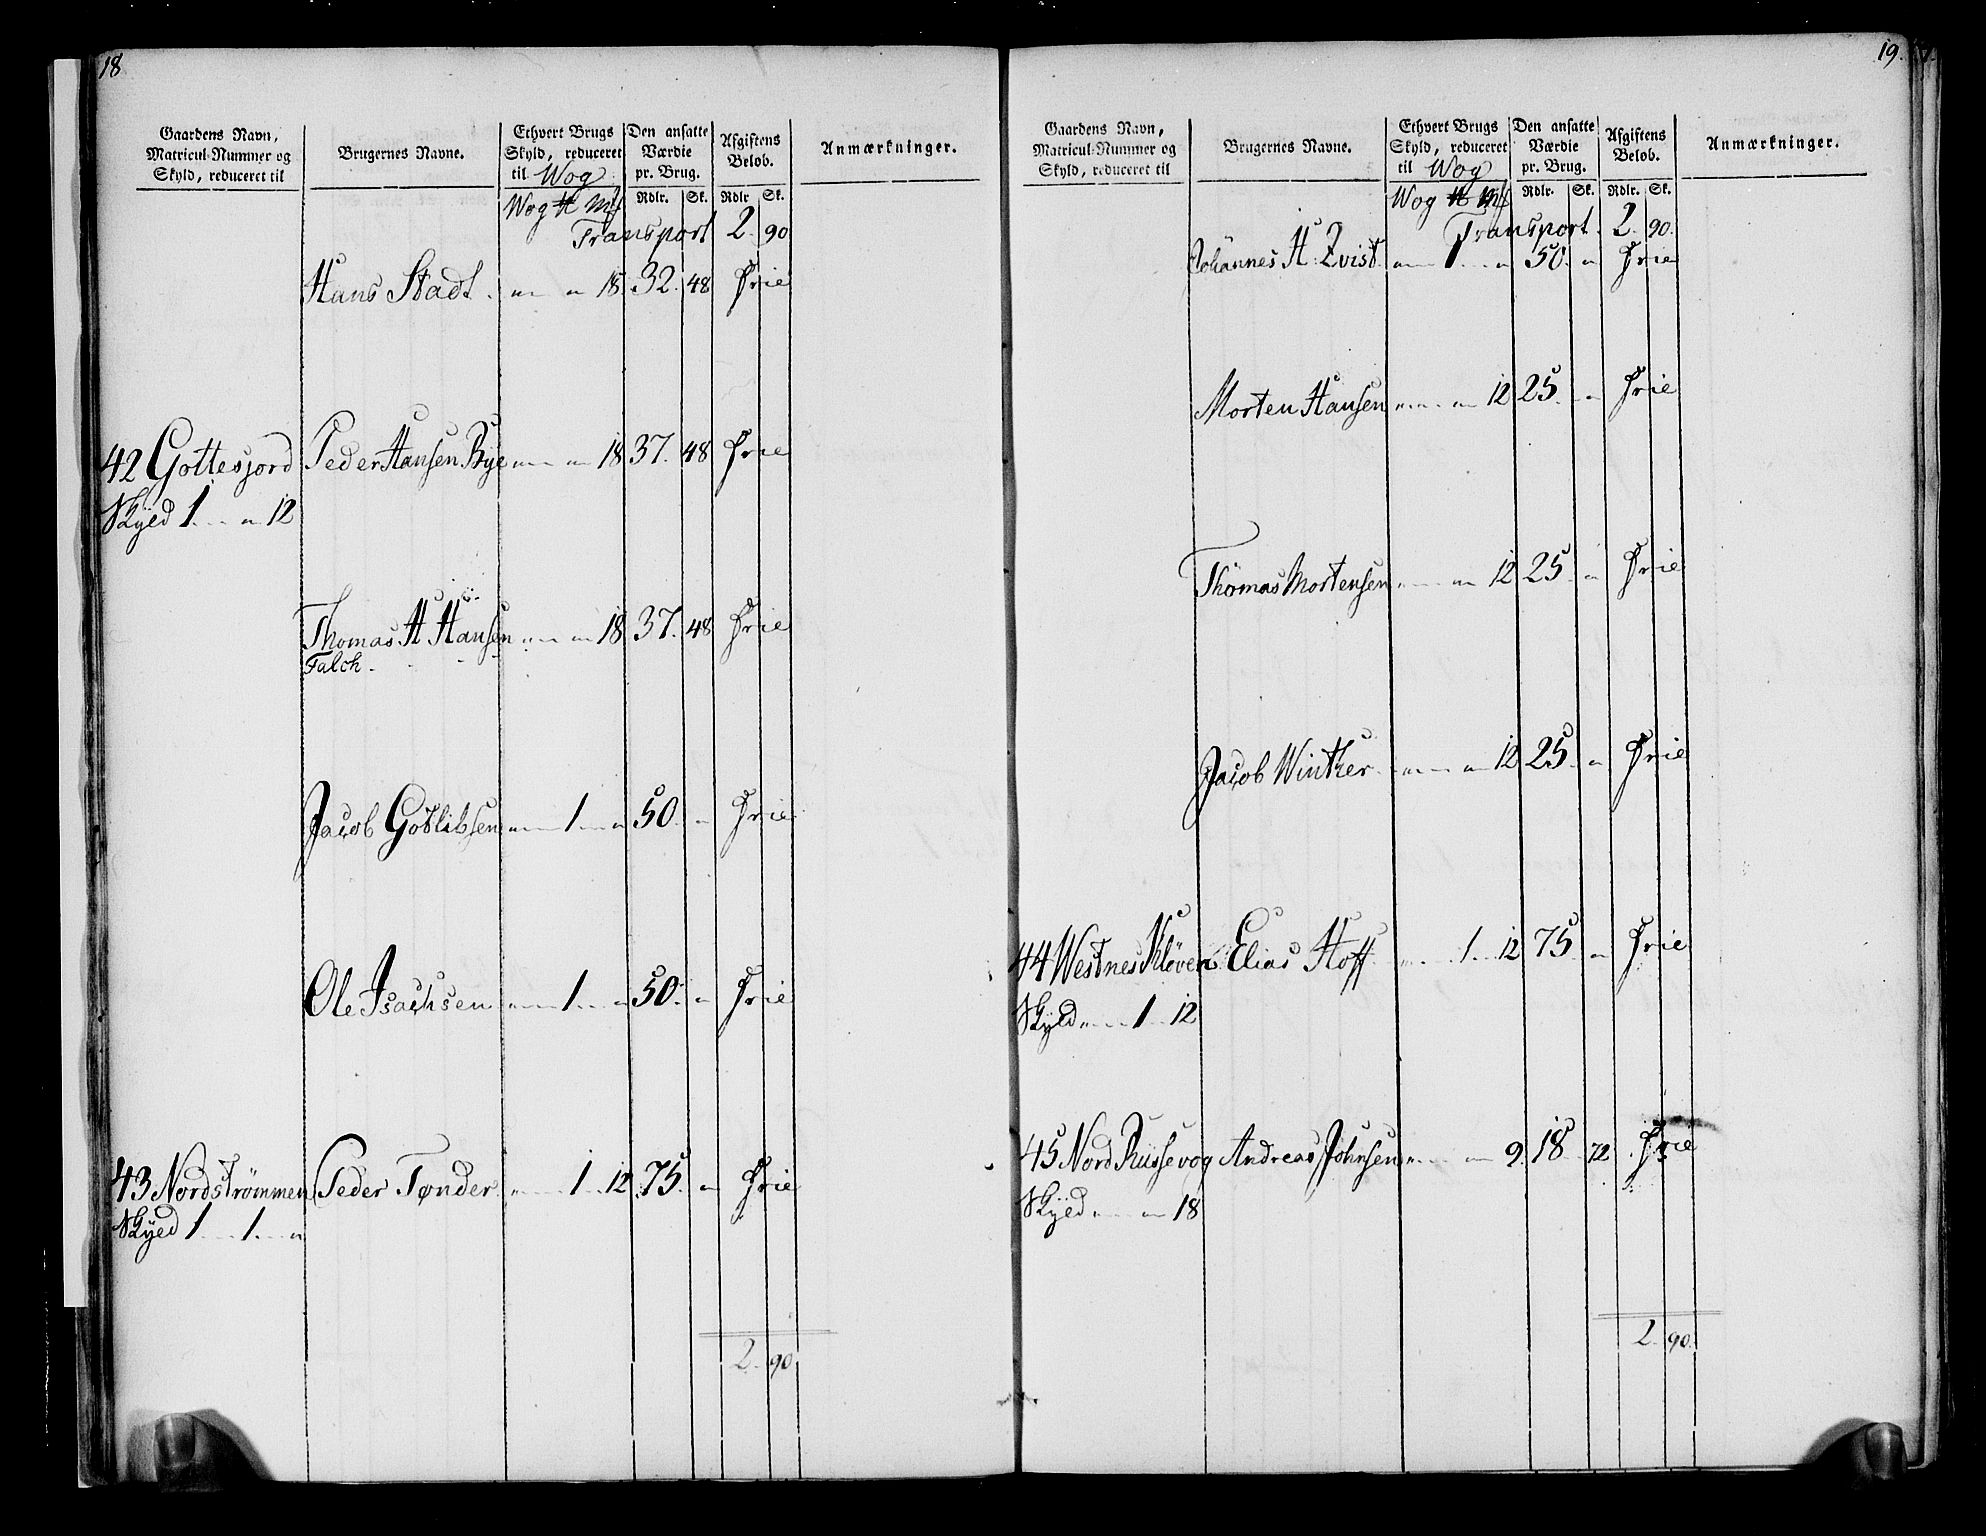 18
Gaardens Navn, Matricul-Nummer og Skyld, reduceret til | Brugernes Navne. | Ethvert Brugs Skyld, reduceret til Wog | Den ansatte Værdie pr. Brug. | Afgiftens Beløb. | Anmærkninger.
Wog ℔ Mk | Rdlr. | Sk. | Rdlr | Sk.
Transport 2. 90
Hans Stadt. " " 18. 32. 48 Frie
42 Gottesjord Peder Hansen Bye " " 18 37. 48 Frie
Skyld 1 " 12
Thomas H Hansen " " 18 37. 48 Frie
Falch.
Jacob Gotlibsen " 1 " 50. " Frie
Ole Isachsen " 1 " 50. " Frie
43 Nordstrømmen Peder Tønder " 1 12 75. " Frie
Skyld 1 1 "
2. 90
19.
Gaardens Navn, Matricul-Nummer og Skyld, reduceret til | Brugernes Navne. | Ethvert Brugs Skyld, reduceret til Wog | Den ansatte Værdie pr. Brug. | Afgiftens Beløb. | Anmærkninger.
Wog ℔ Mk | Rdlr. | Sk. | Rdlr. | Sk.
Transport. 2. 90.
Johannes H. Qvist. " 1 " 50. " Frie
Morten Hansen " " 12 25. " Frie
Thomas Mortensen " " 12 25. " Frie
Jacob Winther. " " 12 25. " Frie
44 Westnes Kløven Elias Hoff " 1 12 75. " Frie
Skyld " 1 12
45 Nord Russevog Andreas Johnsen " " 9. 18 72 Frie
Skyld " " 18
2. 90.